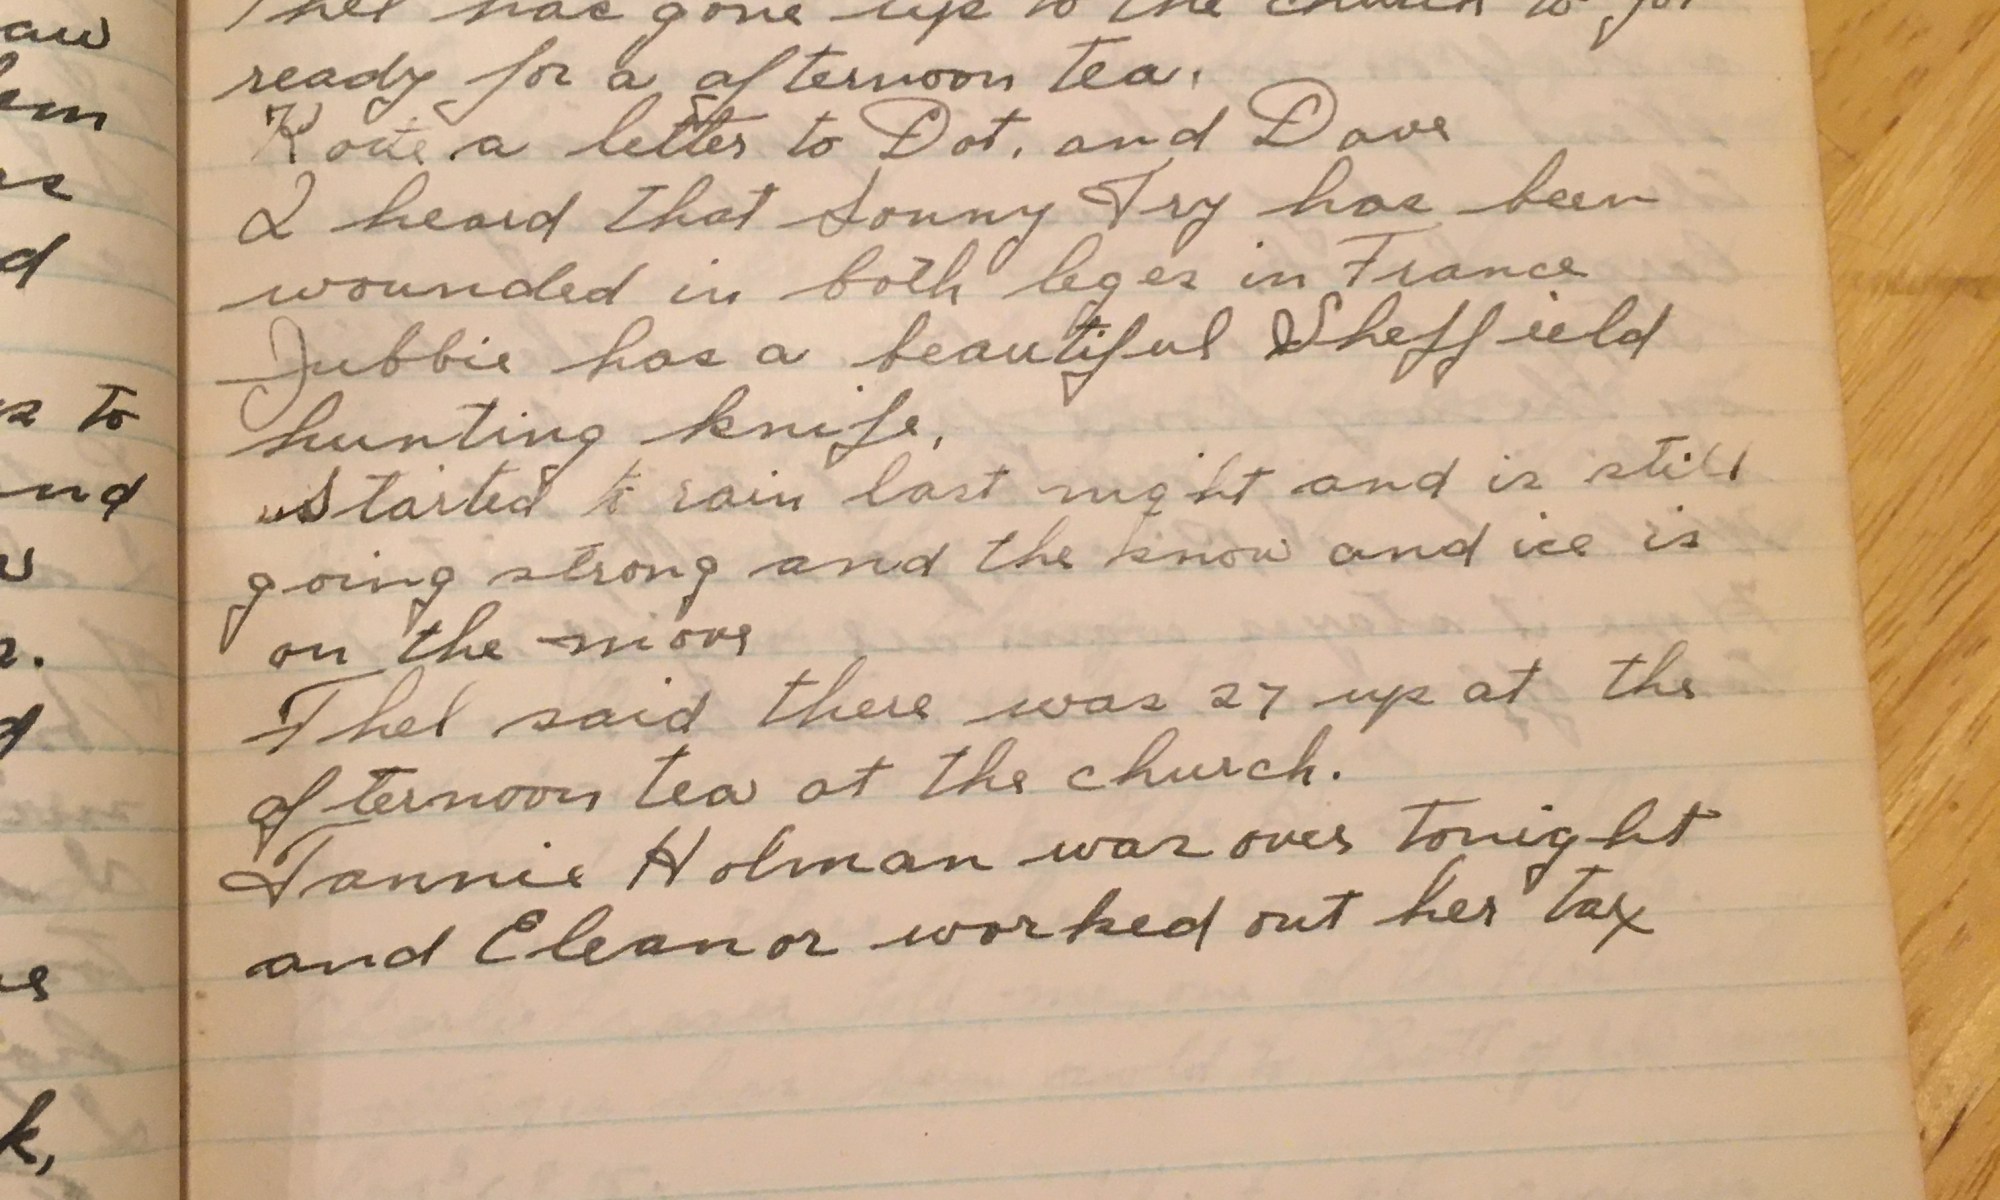 aw
Thel has gone up to the church to get
ready for a afternoon tea.
em
Rote a letter to Dot, and Dave
I heard that Sonny Fry has been
d
wounded in both leges in France
Jubbie has a beautiful Sheffield
to
hunting knife,
nd
Started to rain last night and is still
going strong and the snow and ice is
on the move
Thel said there was 27 up at the
afternoon tea at the church.
Fannie Holman was over tonight
and Eleanor worked out her tax
k,